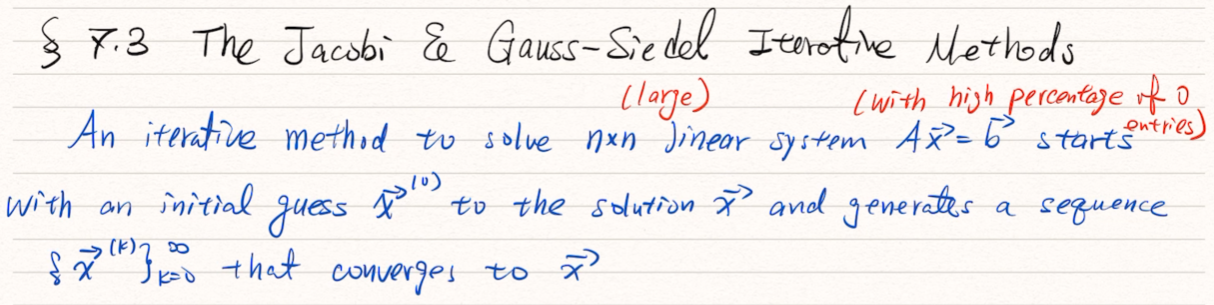 § 7.3 The Jacobi & Gauss-Siedel Iterative Methods
(large) (with high percentage of 0 entries)
An iterative method to solve n×n linear system Ax⃗ = b⃗ starts
with an initial guess x⃗^(0) to the solution x⃗ and generates a sequence
{x⃗^(k)}_{k=0}^∞ that converges to x⃗